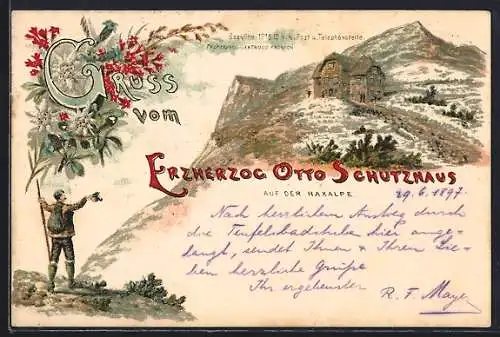 Gruss
vom
Seehöhe
Post u. Telephonstelle
Erzherzog Otto Schutzhaus
AUF DER RAXALPE
29.6.1897.
Nach herrlichem Anstieg durch
die Teufelsbadstube hier ange-
langt, sendet Ihnen & Ihren Lie-
ben herzliche Grüße
Ihr ergebenster
R. F. Mayer